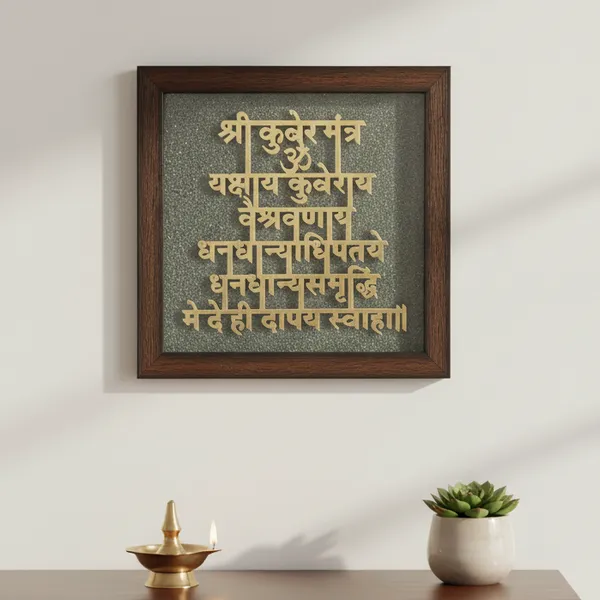 श्री कुबेर मंत्र
ॐ
यक्षाय कुवेराय
वैश्रवणाय
धनधान्याधिपतये
धनधान्यसमृद्धिं
मे देही दापय स्वाहा॥